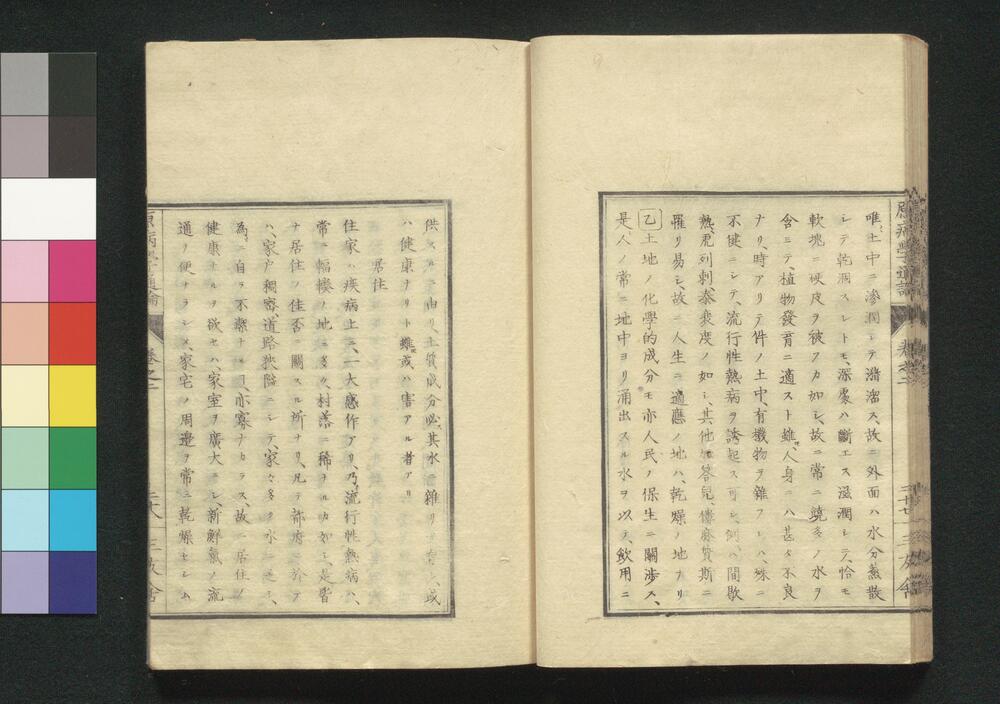 原病學通論 卷之二 二十七 三友舍
唯土中ニ滲潤シテ潴溜ス、故ニ外面ハ水分蒸散
シテ乾涸スレトモ、深處ハ斷エス滋潤シテ恰モ
軟塊ニ硬皮ヲ被フカ如シ、故ニ常ニ饒多ノ水ヲ
含ミテ、植物發育ニ適スト雖、人身ニハ甚タ不良
ナリ、時アリテ件ノ土中、有機物ヲ雜フレハ、殊ニ
不健ニシテ、流行性熱病ヲ誘起ス可シ、例ハ間歇
熱、虎列剌、泰衰度ノ如シ、其他加答兒僂麻質斯ニ
罹リ易シ、故ニ人生ニ適應ノ地ハ、乾燥ノ地ナリ
乙土地ノ化學的成分モ亦人民ノ保生ニ關渉ス、
是人ノ常ニ地中ヨリ涌出スル水ヲ以テ、飮用ニ
供スルニ由リ、土質成分必其水ニ雜リ
ハ健康ナリト雖或ハ害アル者アリ
居住
住家ハ疾病上ニ、一大感作アリ、乃流行性熱病ハ、
常ニ輻輳ノ地ニ多ク、村落ニ稀ナルカ如シ、是皆
ナ居住ノ佳否ニ關スル所ナリ、凡テ都府ニ於テ
ハ、家戸稠密、道路狹隘ニシテ、家々多ク水ニ乏シ、
為ニ自ラ不潔ナル亦寡ナカラス、故ニ居住ノ
健康ナルヲ欲セハ、家室ヲ廣大ニシ、新鮮氣ノ流
通ヲ便ナラシメ、家宅ノ周邊ヲ常ニ乾燥セシム
原病學通論 卷之二 二十八 三友舍